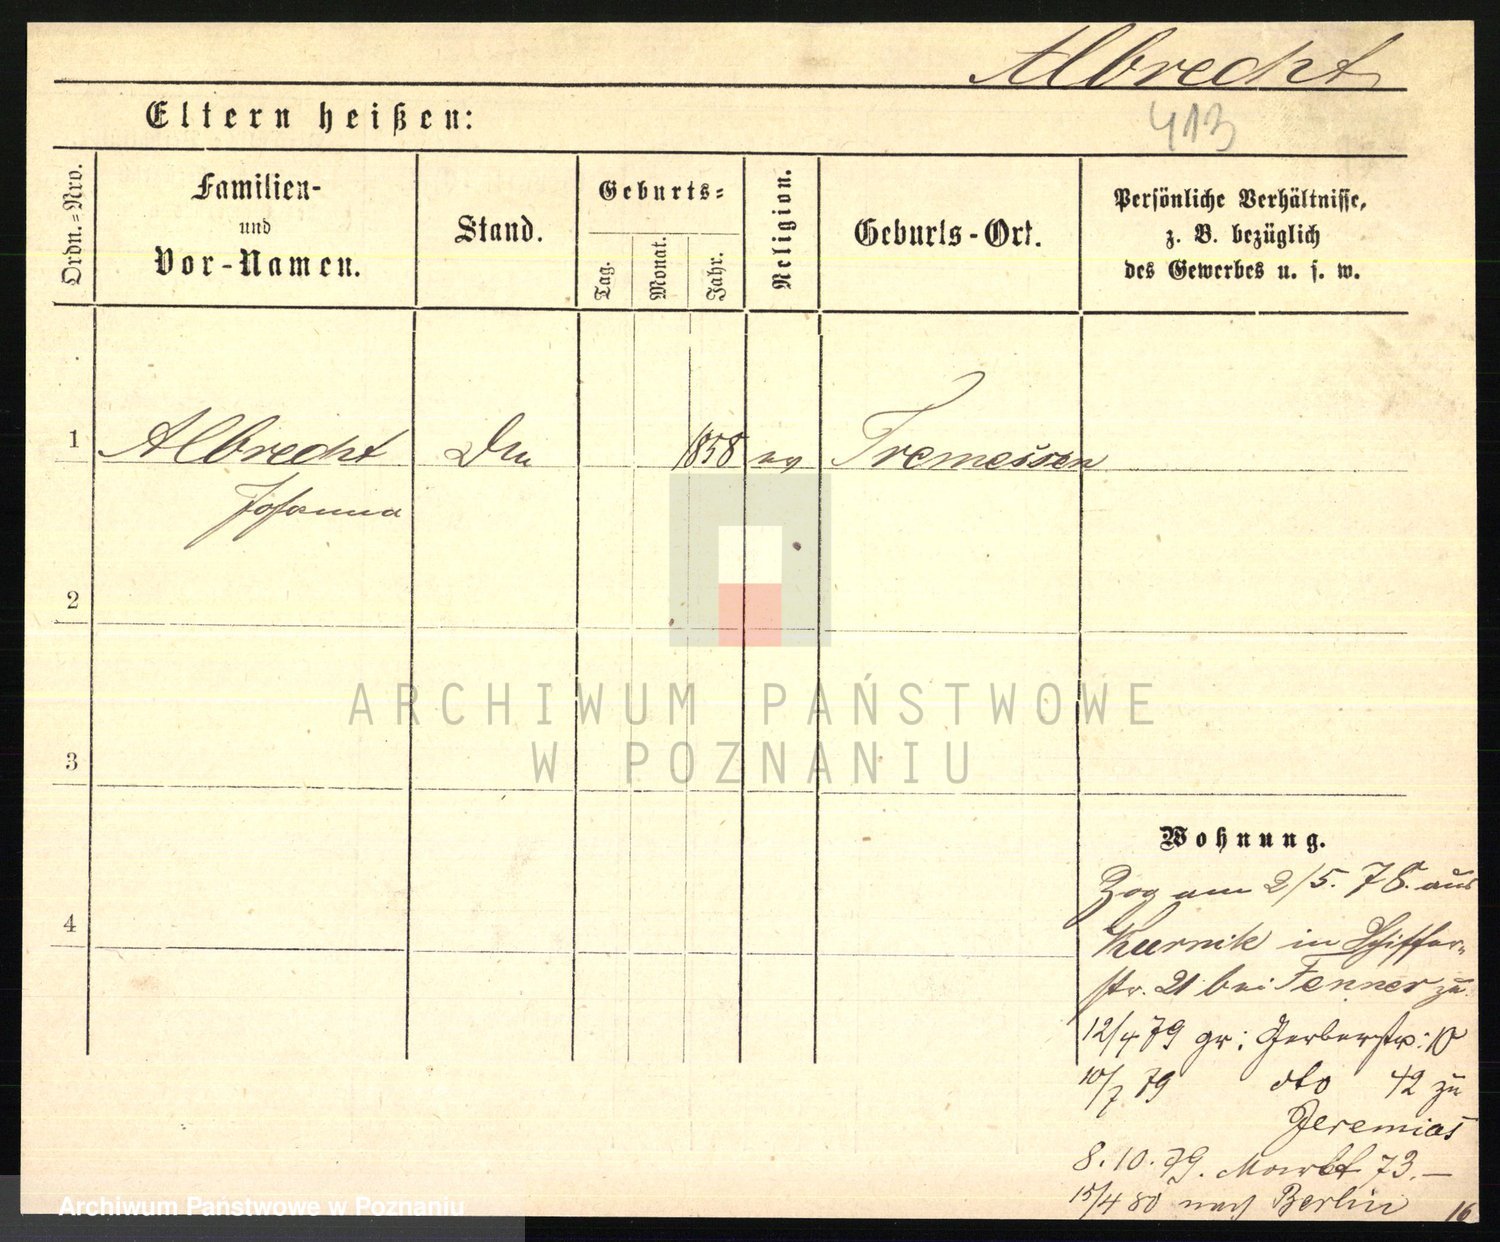 Albrecht
413
Eltern heißen:
Ordn.=Nro.
Familien-
und
Vor-Namen.
Stand.
Geburts=
Tag.
Monat.
Jahr.
Religion.
Geburts-Ort.
Persönliche Verhältnisse,
z. B. bezüglich
des Gewerbes u. s. w.
1 Albrecht 1858 ev Tremessen
Johanna
2
3
4
ARCHIWUM PAŃSTWOWE
W POZNANIU
Wohnung.
Zog am 2/5. 78. aus
Kurnik in Schiffer-
str. 21 bei Fenner zu
12/4 79 gr: Gerberstr:
10/7 79 dto 42 zu
Jeremias
8.10.79. Markt 73.—
15/4 80 nach Berlin
16
Archiwum Państwowe w Poznaniu